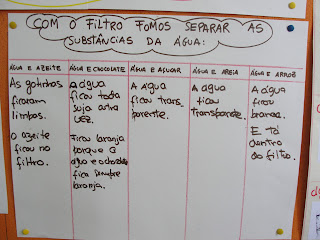 COM O FILTRO FOMOS SEPARAR AS
SUBSTÂNCIAS DA ÁGUA:
ÁGUA E AZEITE
As gotinhas
ficaram
limpas.
O azeite
ficou no
filtro.
ÁGUA E CHOCOLATE
A água
ficou toda
suja outra
vez.
Ficou laranja
porque a
água e chocolate
fica sempre
laranja.
ÁGUA E AÇUCAR
A água
ficou trans
parente.
ÁGUA E AREIA
A água
ficou
transparente.
ÁGUA E ARROZ
A água
ficou
branca.
E tá
dentro
do filtro.